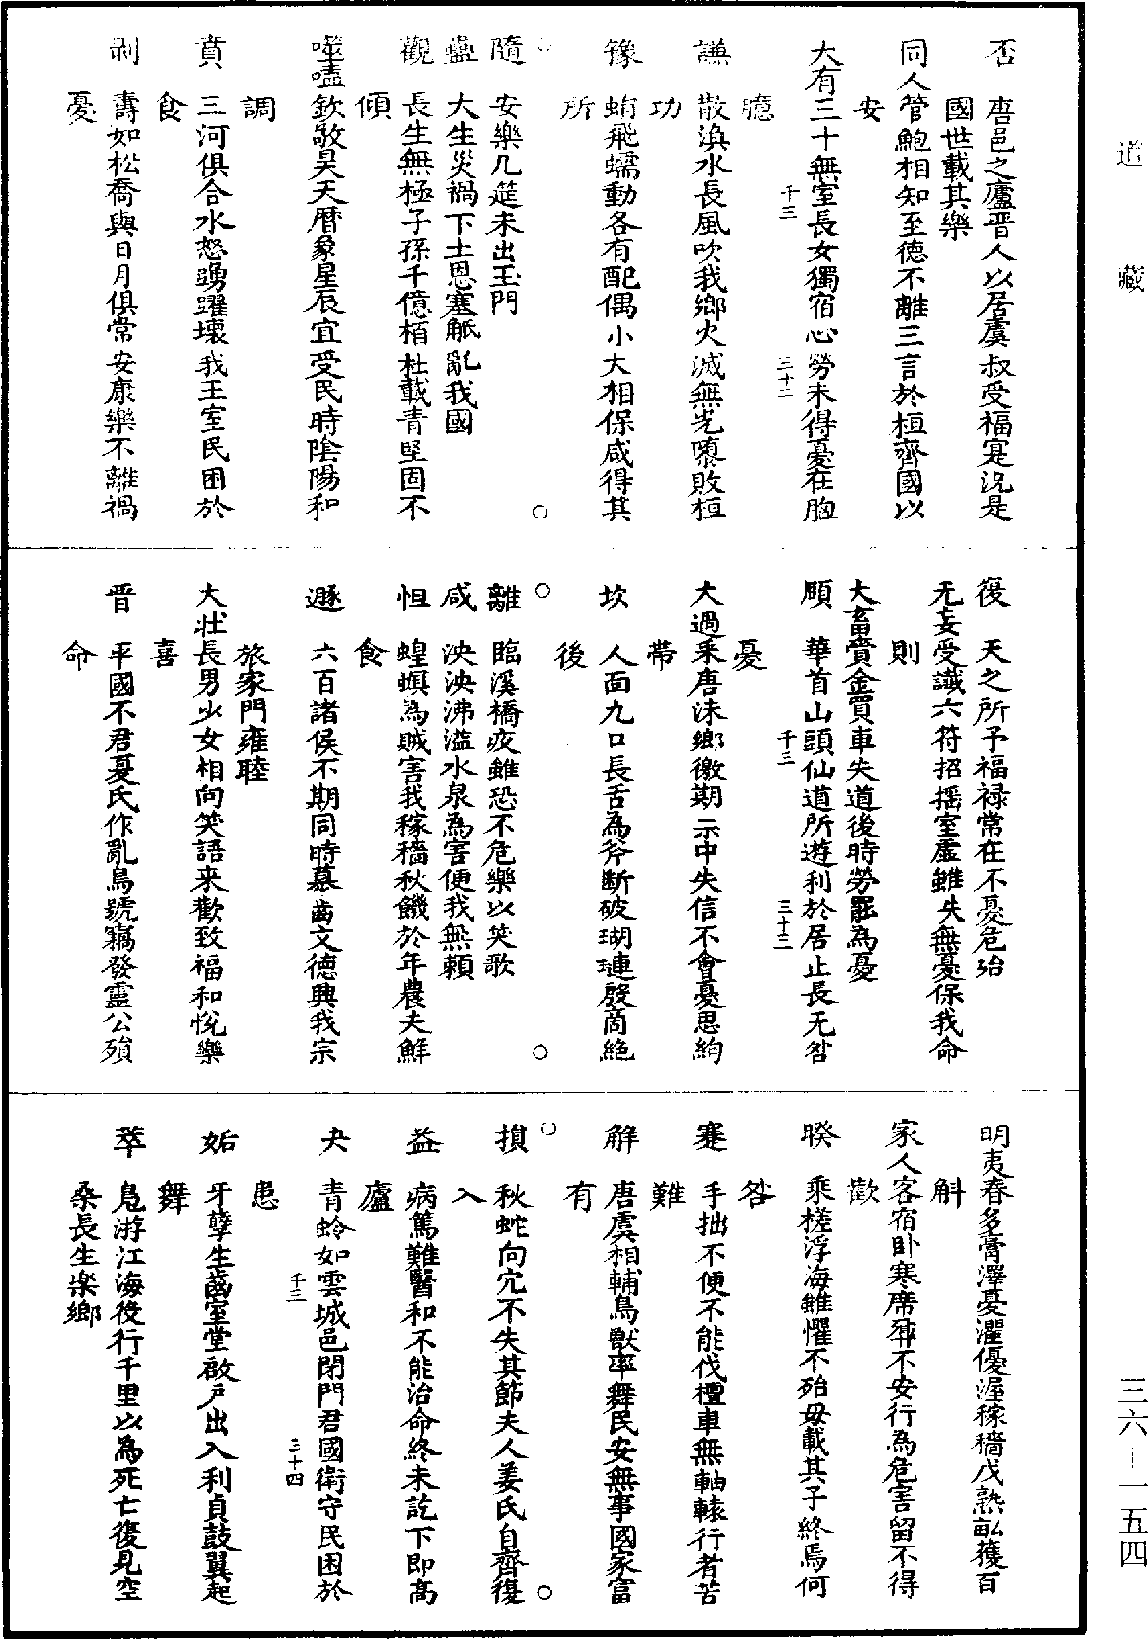 道藏
三六—一五四
否　唐邑之廬晋人以居虞叔受福寔沉是
國世載其樂
同人管鮑相知至德不離三言於桓齊國以
安
大有三十無室長女獨宿心勞未得憂在胸
臆
千三
三十二
謙　散渙水長風吹我鄉火滅無光隳敗桓
功
豫　蜎飛蠕動各有配偶小大相保咸得其
所
隨　安樂几筵未出王門
蠱　大生災禍下土恩塞觝亂我國
觀　長生無極子孫千億栢杜載青堅固不
傾
噬嗑欽敬昊天曆象星辰宜受民時陰陽和
調
賁　三河俱合水怒踴躍壞我王室民困於
食
剥　壽如松喬與日月俱常安康樂不離禍
憂
復　天之所予福禄常在不憂危殆
无妄受讖六符招摇室虛雖失無憂保我命
則
大畜賣金買車失道後時勞罷為憂
頤　華首山頭仙道所遊利於居止長无咎
憂
千三
三十三
大過釆唐沬鄉徼期示中失信不會憂思約
帶
坎　人面九口長舌為斧斷破瑚璉殷商絶
後
離　臨溪橋疫雖恐不危樂以笑歌
咸　泱泱沸溢水泉為害便我無賴
恒　蝗螟為賊害我稼穡秋饑於年農夫鮮
食
遯　六百諸侯不期同時慕齒文德興我宗
旅家門雍睦
大壯長男少女相向笑語来歡致福和悅樂
喜
晋　平國不君憂氏作亂烏號竊發靈公殞
命
明夷春多膏澤憂灈優渥稼穡戊熟畝獲百
斛
家人客宿卧寒席蓐不安行為危害留不得
歡
睽　乘槎浮海雖懼不殆毋載其子終焉何
咎
蹇　手拙不便不能伐檀車無軸轅行者苦
難
解　唐虞相輔鳥獸率舞民安無事國家富
有
損　秋蛇向穴不失其節夫人姜氏自齊復
入
益　病篤難醫和不能治命終未訖下即高
廬
夬　青蛉如雲城邑閉門君國衛守民困於
患
千三
三十四
姤　牙孽生齒室堂啟戶出入利貞鼓翼起
舞
萃　鳧游江海役行千里以為死亡復見空
桑長生楽鄉